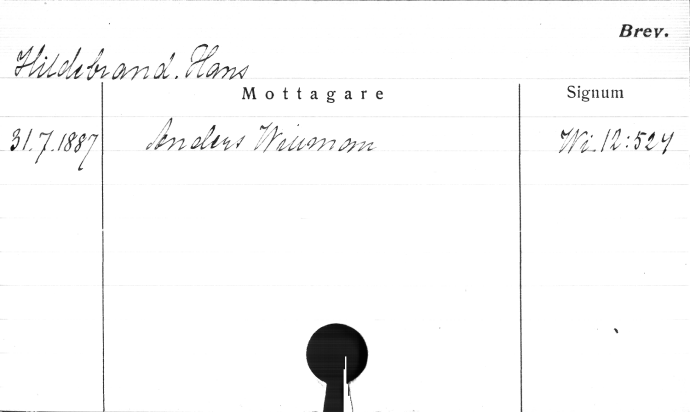 Brev.
Hildebrand. Hans
Mottagare Signum
31.7.1887 Anders Wiuman Wi_12:524